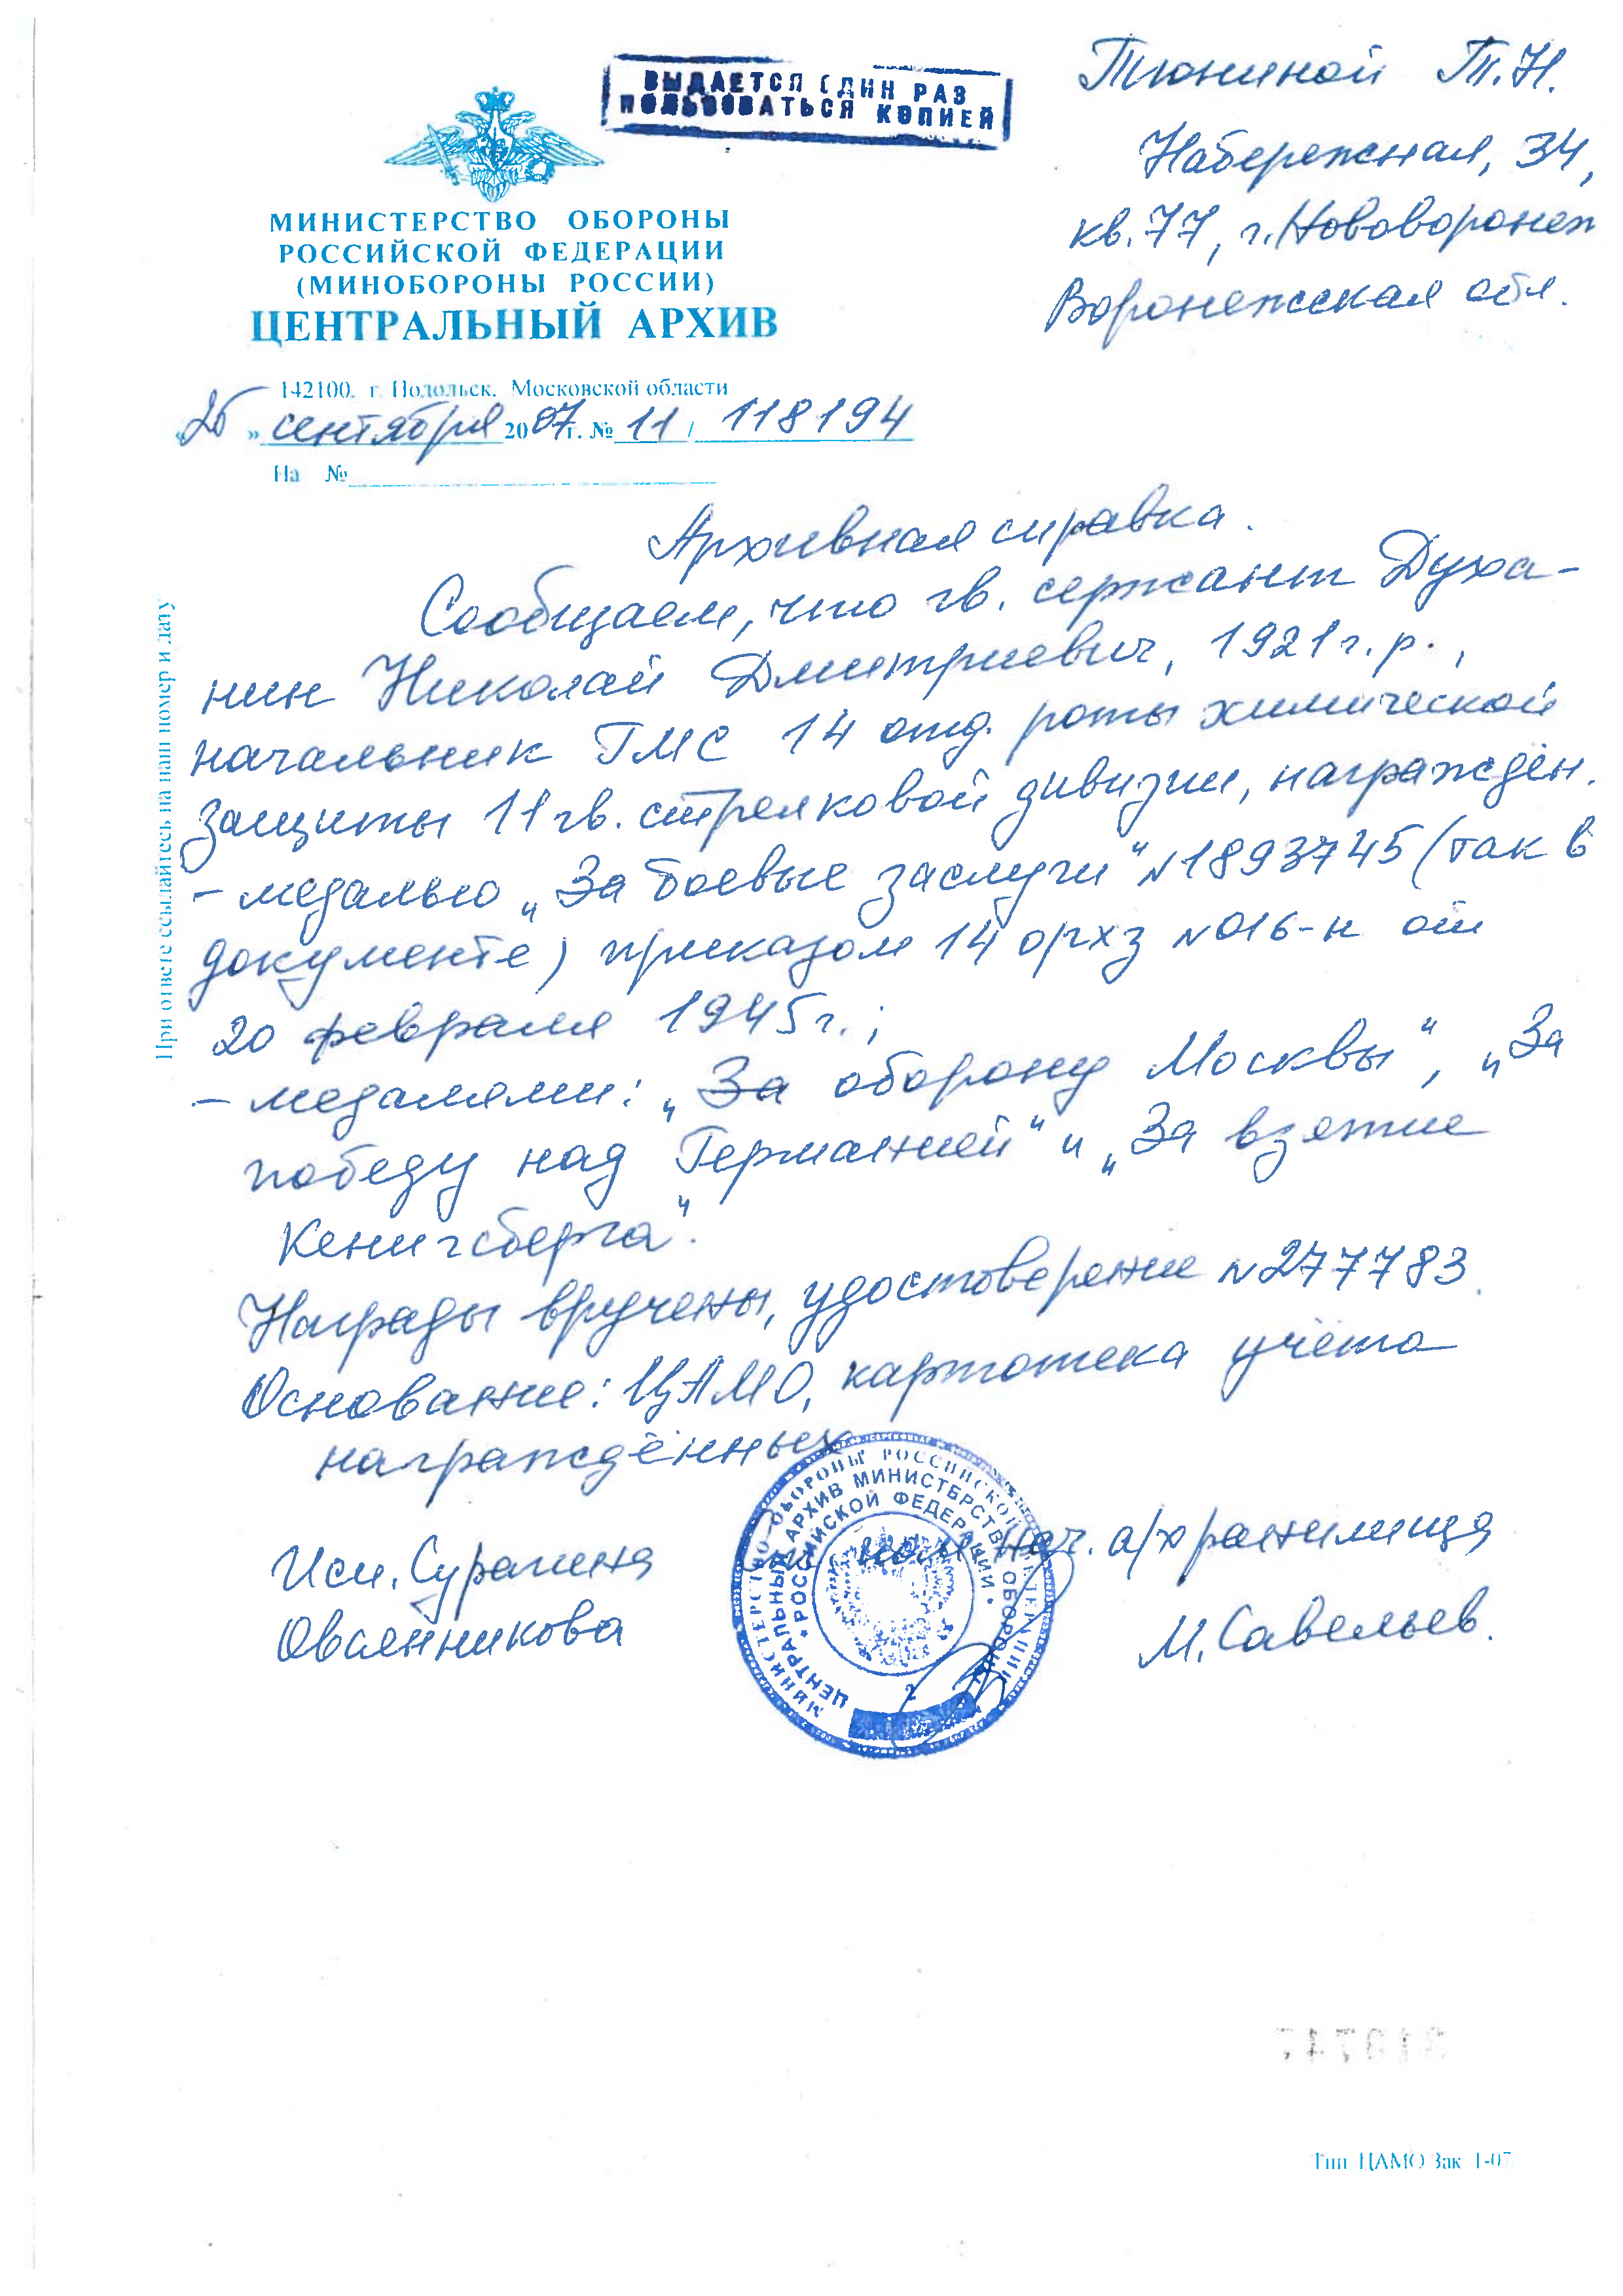 ВЫДАЕТСЯ ОДИН РАЗ
ПОЛЬЗОВАТЬСЯ КОПИЕЙ
Тюниной Т.Н.
Набережная, 34,
кв. 77, г. Нововоронеж
Воронежская обл.
МИНИСТЕРСТВО ОБОРОНЫ
РОССИЙСКОЙ ФЕДЕРАЦИИ
(МИНОБОРОНЫ РОССИИ)
ЦЕНТРАЛЬНЫЙ АРХИВ
142100, г. Подольск, Московской области
«26» сентября 2007 г. № 11/118194
На №
При ответе ссылайтесь на наш номер и дату
Архивная справка.
Сообщаем, что гв. сержант Духа-
нин Николай Дмитриевич, 1921 г.р.,
начальник ГМС 14 отд. роты химической
защиты 11 гв. стрелковой дивизии, награждён.
- медалью „За боевые заслуги" №1893745 (так в
документе) приказом 14 орхз №016-н от
20 февраля 1945г.;
- медалями: „За оборону Москвы", „За
победу над Германией" и „За взятие
Кенигсберга".
Награды вручены, удостоверение №277783.
Основание: ЦАМО, картотека учёта
награждённых
нач. а/хранилища
Исп. Сурагина
Овсянникова
М. Савельев.
МИНИСТЕРСТВО ОБОРОНЫ РОССИЙСКОЙ ФЕДЕРАЦИИ
ЦЕНТРАЛЬНЫЙ АРХИВ МИНИСТЕРСТВА ОБОРОНЫ
* РОССИЙСКОЙ ФЕДЕРАЦИИ *
2
Тип. ЦАМО Зак. 1-07